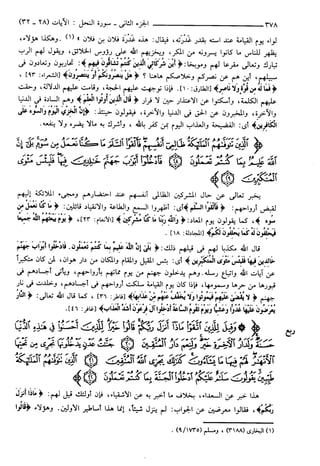 ٣٧٨ الجزء الثاني ـ سورة النحل : الآيات (٢٨ ـ ٣٢)
لواء يوم القيامة عند استه بقدر غَدْرته، فيقال: هذه غَدْرة فلان بن فلان» (١). وهكذا هؤلاء،
يظهر للناس ما كانوا يسرونه من المكر، ويخزيهم الله على رؤوس الخلائق، ويقول لهم الرب
تبارك وتعالى مقرعا لهم وموبخا: ﴿أَيْنَ شُرَكَائِيَ الَّذِينَ كُنتُمْ تُشَاقُّونَ فِيهِمْ﴾: تحاربون وتعادون في
سبيلهم، أين هم عن نصركم وخلاصكم هاهنا؟ ﴿هَلْ يَنصُرُونَكُمْ أَوْ يَنتَصِرُونَ﴾ [الشعراء: ٩٣] ،
﴿فَمَا لَهُ مِن قُوَّةٍ وَلَا نَاصِرٍ﴾ [الطارق: ١٠]. فإذا توجهت عليهم الحجة، وقامت عليهم الدلالة، وحقت
عليهم الكلمة، وأسكتوا عن الاعتذار حين لا فرار ﴿قَالَ الَّذِينَ أُوتُوا الْعِلْمَ﴾ وهم السادة في الدنيا
والآخرة، والمخبرون عن الحق في الدنيا والآخرة، فيقولون حينئذ: ﴿إِنَّ الْخِزْيَ الْيَوْمَ وَالسُّوءَ عَلَى
الْكَافِرِينَ﴾ أي: الفضيحة والعذاب اليوم بمن كفر بالله ، وأشرك به مالا يضره ولا ينفعه.
﴿الَّذِينَ تَتَوَفَّاهُمُ الْمَلَائِكَةُ ظَالِمِي أَنفُسِهِمْ فَأَلْقَوُا السَّلَمَ مَا كُنَّا نَعْمَلُ مِن سُوءٍ بَلَىٰ إِنَّ
اللَّهَ عَلِيمٌ بِمَا كُنتُمْ تَعْمَلُونَ (٢٨) فَادْخُلُوا أَبْوَابَ جَهَنَّمَ خَالِدِينَ فِيهَا فَلَبِئْسَ مَثْوَى
الْمُتَكَبِّرِينَ (٢٩)﴾
يخبر تعالى عن حال المشركين الظالمي أنفسهم عند احتضارهم ومجيء الملائكة إليهم
لقبض أرواحهم: ﴿فَأَلْقَوُا السَّلَمَ﴾ أي: أظهروا السمع والطاعة والانقياد قائلين: ﴿مَا كُنَّا نَعْمَلُ مِن
سُوءٍ﴾، كما يقولون يوم المعاد: ﴿وَاللَّهِ رَبِّنَا مَا كُنَّا مُشْرِكِينَ﴾ [الأنعام: ٢٣]، ﴿يَوْمَ يَبْعَثُهُمُ اللَّهُ جَمِيعًا
فَيَحْلِفُونَ لَهُ كَمَا يَحْلِفُونَ لَكُمْ﴾ [المجادلة: ١٨] .
قال الله مكذبا لهم في قيلهم ذلك: ﴿بَلَىٰ إِنَّ اللَّهَ عَلِيمٌ بِمَا كُنتُمْ تَعْمَلُونَ. فَادْخُلُوا أَبْوَابَ جَهَنَّمَ
خَالِدِينَ فِيهَا فَلَبِئْسَ مَثْوَى الْمُتَكَبِّرِينَ﴾ أي: بئس المقيل والمقام والمكان من دار هوان، لمن كان متكبراً
عن آيات الله واتباع رسله. وهم يدخلون جهنم من يوم مماتهم بأرواحهم، ويأتي أجسادهم في
قبورها من حرها وسمومها، فإذا كان يوم القيامة سلكت أرواحهم في أجسادهم، وخلدت في نار
جهنم ﴿لَا يُقْضَىٰ عَلَيْهِمْ فَيَمُوتُوا وَلَا يُخَفَّفُ عَنْهُم مِّنْ عَذَابِهَا﴾ [فاطر: ٣٦] ، كما قال الله تعالى: ﴿النَّارُ
يُعْرَضُونَ عَلَيْهَا غُدُوًّا وَعَشِيًّا وَيَوْمَ تَقُومُ السَّاعَةُ أَدْخِلُوا آلَ فِرْعَوْنَ أَشَدَّ الْعَذَابِ﴾ [غافر: ٤٦].
ربع
هذا خبر عن السعداء، بخلاف ما أخبر به عن الأشقياء، فإن أولئك قيل لهم: ﴿مَاذَا أَنزَلَ
رَبُّكُمْ﴾، فقالوا معرضين عن الجواب: لم ينزل شيئاً، إنما هذا أساطير الأولين. وهؤلاء ﴿قَالُوا
(١) البخاري (٣١٨٨) ، ومسلم (٩/١٧٣٥).